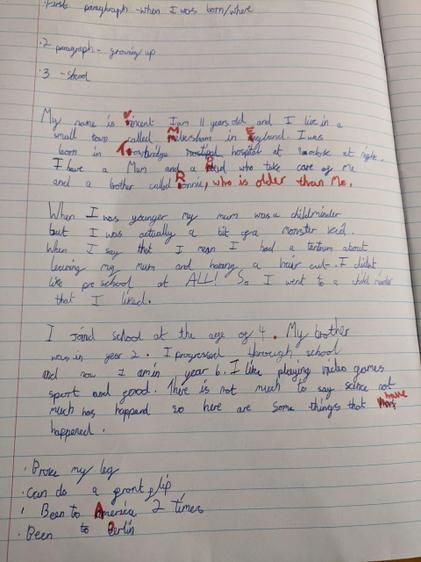 ·first paraghraph -when I was born/where
·2 paragraph - growing up
·3 -
My name is Vincent I am 11 years old and I live in a
small town called Melksham in England. I was
born in Trowbridge hospital at at night.
I have a Mum and a Dad who take care of me
and a brother called Ronnie, who is older than Me.
When I was younger my mum was a childminder
but I was actually a bit of a monster kid.
When I say that I mean I had a tantrum about
leaving my mum and having a hair cut. I didnt
like pre school at ALL! So I went to a child minder
that I liked.
I joind school at the age of 4. My brother
was in year 2. I progressed through school
and now I am in year 6. I like playing video games
sport and good. There is not much to say scince not
much has happend so here are some things that have
happened.
·Broke my leg
·can do a front flip
· Been to America 2 times
·Been to Berlin